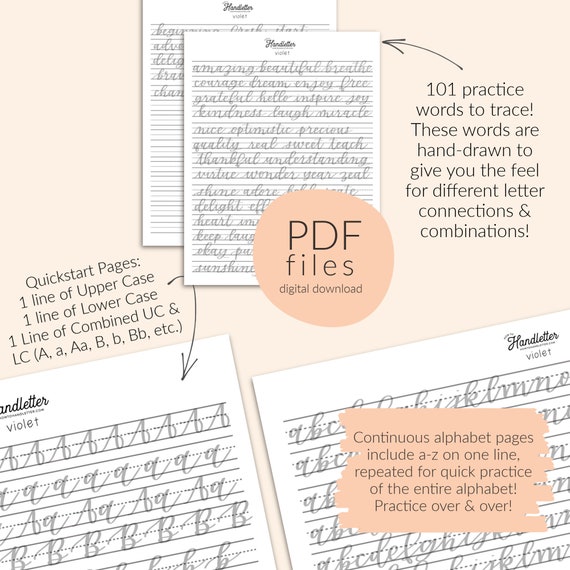 Handletter
violet
beginning fresh start
Handletter
violet
amazing beautiful breathe
courage dream enjoy free
grateful hello inspire joy
kindness laugh miracle
nice optimistic precious
quality real sweet teach
thankful understanding
virtue wonder year zeal
shine adore bold create
delight
heart
keep laugh
okay
sunshine
101 practice
words to trace!
These words are
hand-drawn to
give you the feel
for different letter
connections &
combinations!
PDF
files
digital download
Quickstart Pages:
1 line of Upper Case
1 line of Lower Case
1 Line of Combined UC &
LC (A, a, Aa, B, b, Bb, etc.)
Handletter
violet
A A A A A A A
a a a a a a a
Aa Aa Aa Aa
B B B B B B
Handletter
violet
abcdefghijklmno
Continuous alphabet pages
include a-z on one line,
repeated for quick practice
of the entire alphabet!
Practice over & over!
abcdefghijkl